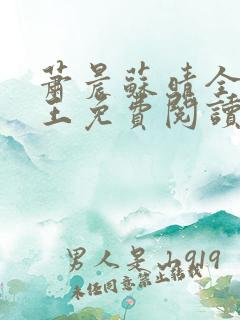 蕭晨蘇晴全
王免費閱讀
男人是山919
未经同意禁止转载